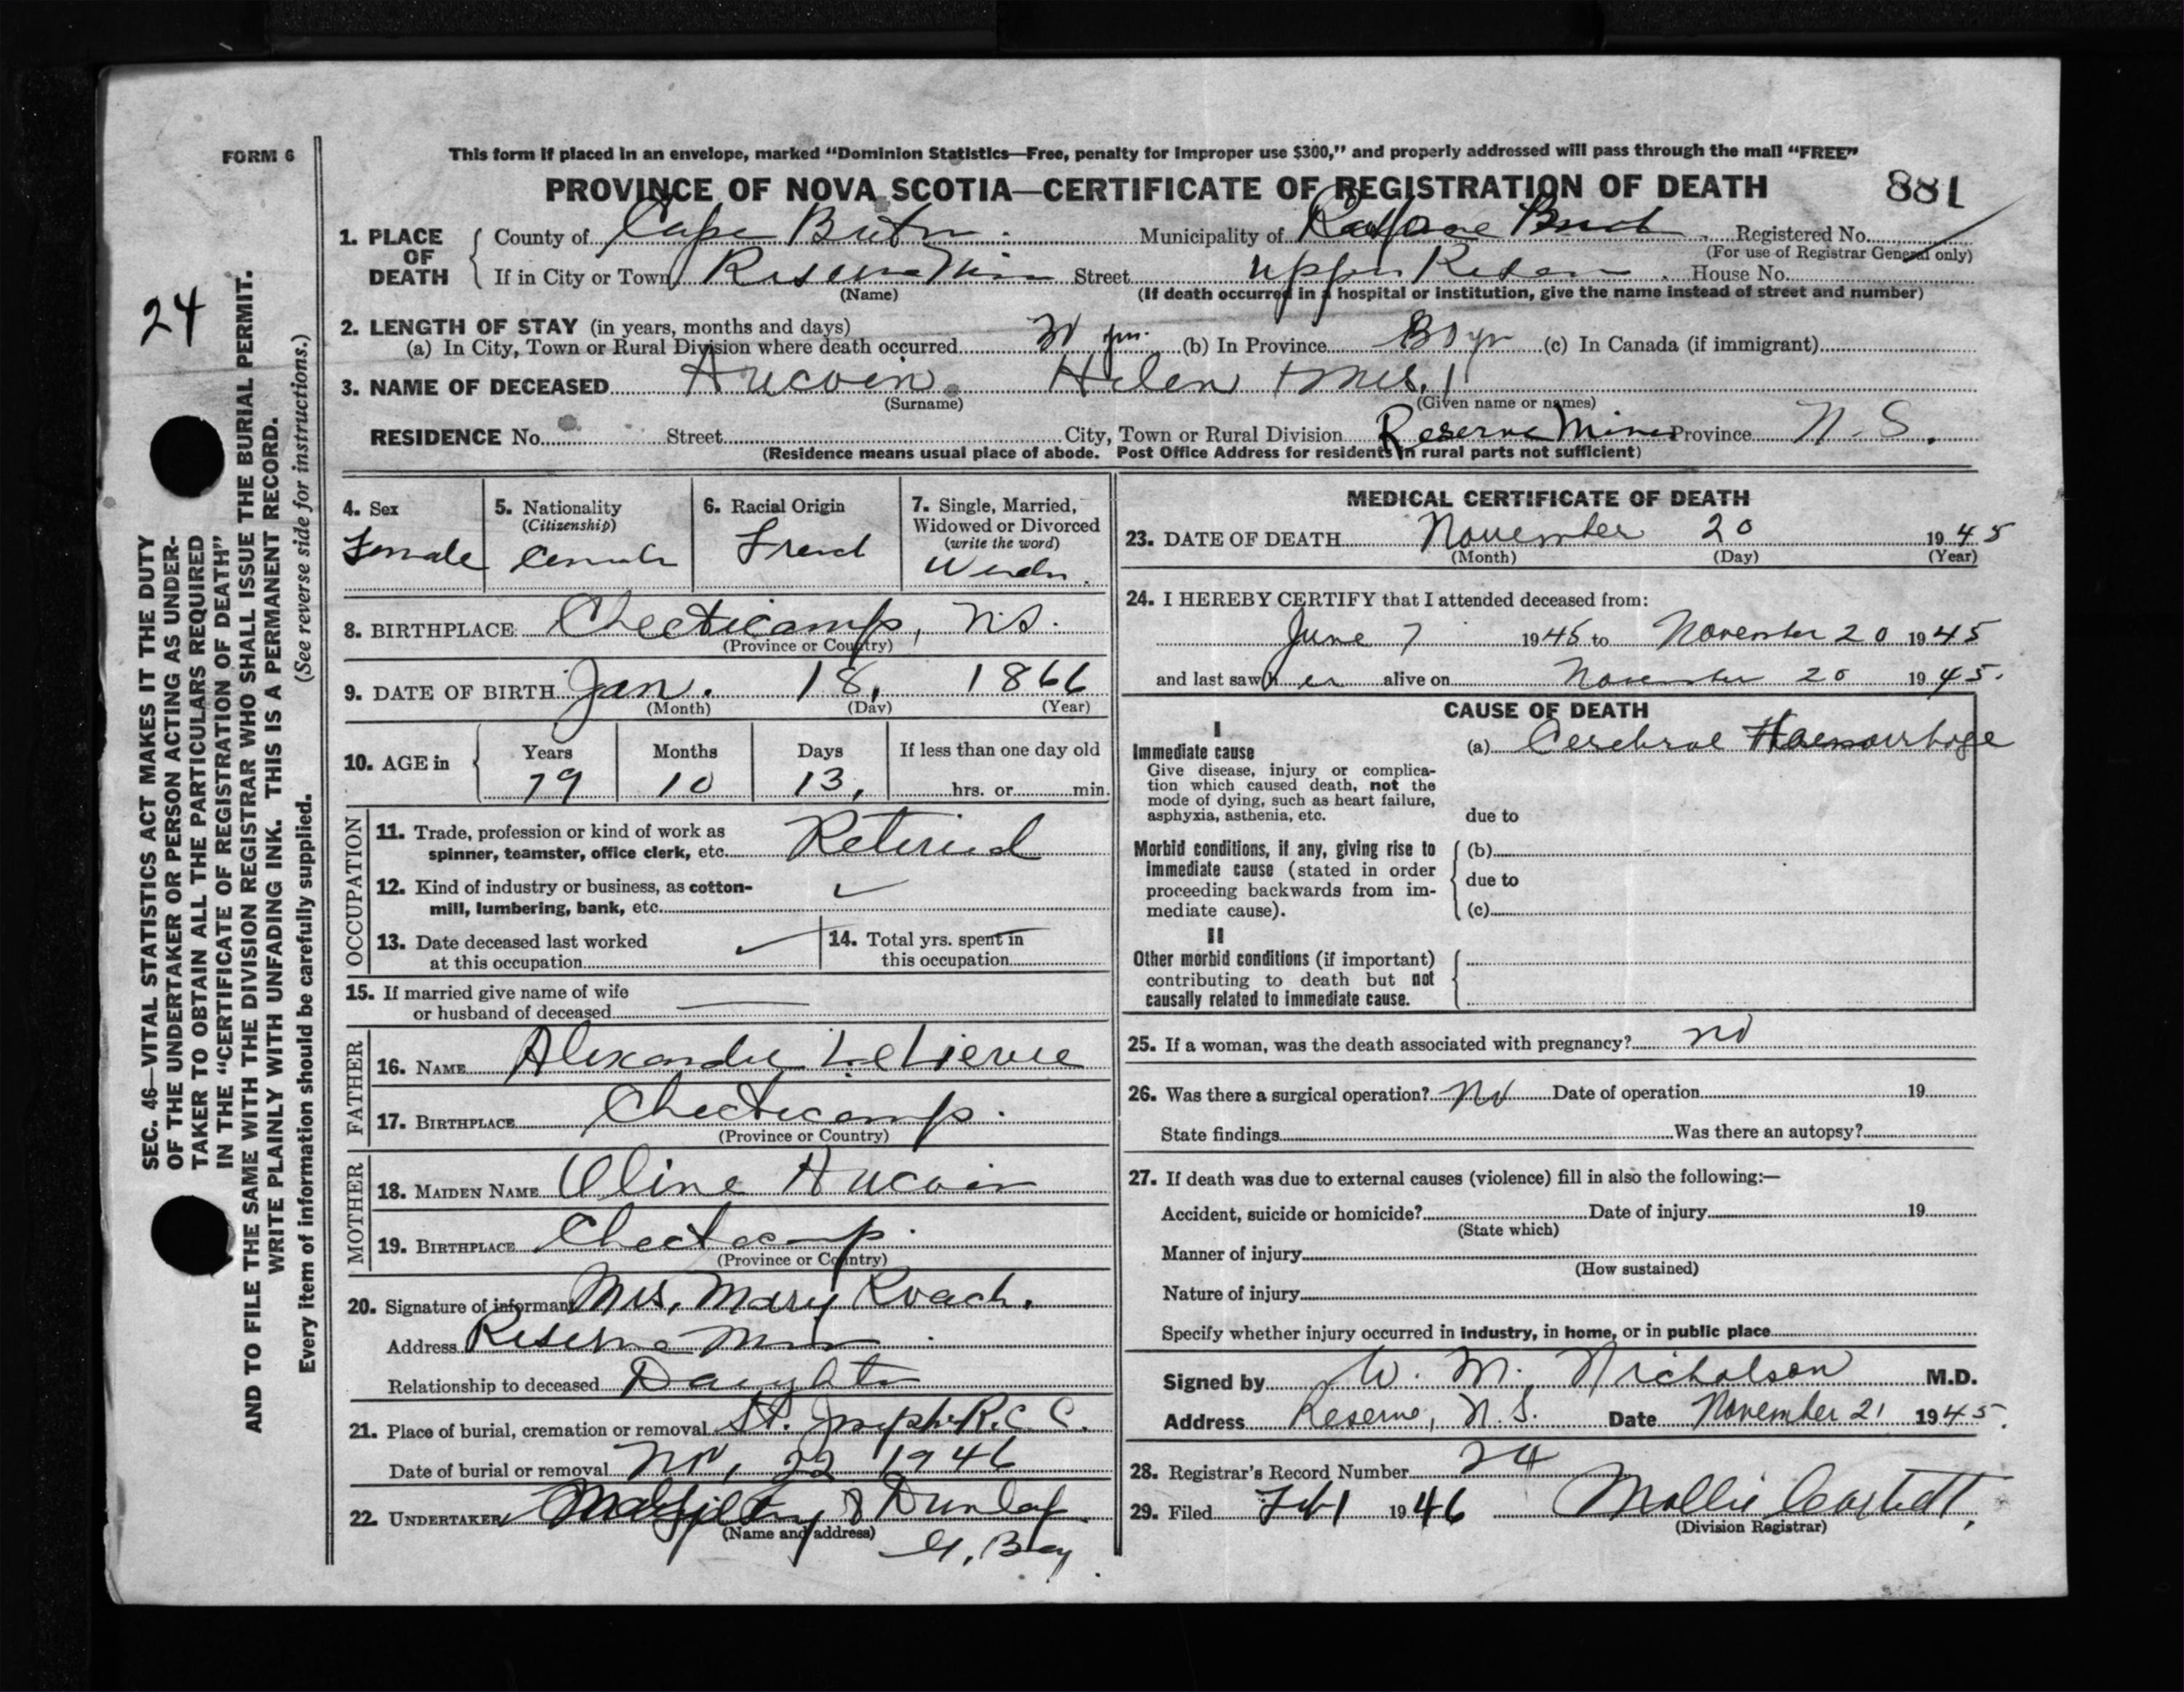 FORM 6
This form if placed in an envelope, marked "Dominion Statistics—Free, penalty for improper use $300," and properly addressed will pass through the mail "FREE"
PROVINCE OF NOVA SCOTIA—CERTIFICATE OF REGISTRATION OF DEATH 881
1. PLACE OF DEATH
County of Cape Breton Municipality of Registered No.
(For use of Registrar General only)
If in City or Town Reserve Mines Street Upper Reserve House No.
(Name) (If death occurred in a hospital or institution, give the name instead of street and number)
2. LENGTH OF STAY (in years, months and days)
(a) In City, Town or Rural Division where death occurred yrs. (b) In Province 80 yr (c) In Canada (if immigrant)
3. NAME OF DECEASED Aucoin Helen Mrs.
(Surname) (Given name or names)
RESIDENCE No. Street City, Town or Rural Division Reserve Mines Province N.S.
(Residence means usual place of abode. Post Office Address for residents in rural parts not sufficient)
4. Sex
Female
5. Nationality
(Citizenship)
6. Racial Origin
French
7. Single, Married, Widowed or Divorced
(write the word)
Widow.
8. BIRTHPLACE Cheticamp, N.S.
(Province or Country)
9. DATE OF BIRTH Jan. 18, 1866
(Month) (Day) (Year)
10. AGE in Years Months Days If less than one day old
79 10 13, hrs. or min.
OCCUPATION
11. Trade, profession or kind of work as
spinner, teamster, office clerk, etc. Retired
12. Kind of industry or business, as cotton-
mill, lumbering, bank, etc.
13. Date deceased last worked
at this occupation
14. Total yrs. spent in
this occupation
15. If married give name of wife
or husband of deceased
FATHER
16. NAME Alexandre LeLievre
17. BIRTHPLACE Cheticamp.
(Province or Country)
MOTHER
18. MAIDEN NAME Oline Aucoin
19. BIRTHPLACE Cheticamp.
(Province or Country)
20. Signature of informant Mrs. Mary Roach.
Address Reserve Mines
Relationship to deceased Daughter
21. Place of burial, cremation or removal St. Joseph R.C.C.
Date of burial or removal Nov, 22 1946
22. UNDERTAKER & Dunlap
(Name and address)
G. Bay
MEDICAL CERTIFICATE OF DEATH
23. DATE OF DEATH November 20 1945
(Month) (Day) (Year)
24. I HEREBY CERTIFY that I attended deceased from:
June 7 1945 to November 20 1945
and last saw h er alive on November 20 1945.
CAUSE OF DEATH
I
Immediate cause (a) Cerebral Haemorrhage
Give disease, injury or complica-
tion which caused death, not the
mode of dying, such as heart failure,
asphyxia, asthenia, etc. due to
Morbid conditions, if any, giving rise to (b)
immediate cause (stated in order due to
proceeding backwards from im-
mediate cause). (c)
II
Other morbid conditions (if important)
contributing to death but not
causally related to immediate cause.
25. If a woman, was the death associated with pregnancy? no
26. Was there a surgical operation? No Date of operation 19
State findings Was there an autopsy?
27. If death was due to external causes (violence) fill in also the following:—
Accident, suicide or homicide? Date of injury 19
(State which)
Manner of injury
(How sustained)
Nature of injury
Specify whether injury occurred in industry, in home, or in public place
Signed by W. M. Nicholson M.D.
Address Reserve, N.S. Date November 21 1945.
28. Registrar's Record Number 24
29. Filed Feb 1 1946 Mollie
(Division Registrar)
24
SEC. 46—VITAL STATISTICS ACT MAKES IT THE DUTY
OF THE UNDERTAKER OR PERSON ACTING AS UNDER-
TAKER TO OBTAIN ALL THE PARTICULARS REQUIRED
IN THE "CERTIFICATE OF REGISTRATION OF DEATH"
AND TO FILE THE SAME WITH THE DIVISION REGISTRAR WHO SHALL ISSUE THE BURIAL PERMIT.
WRITE PLAINLY WITH UNFADING INK. THIS IS A PERMANENT RECORD.
Every item of information should be carefully supplied. (See reverse side for instructions.)